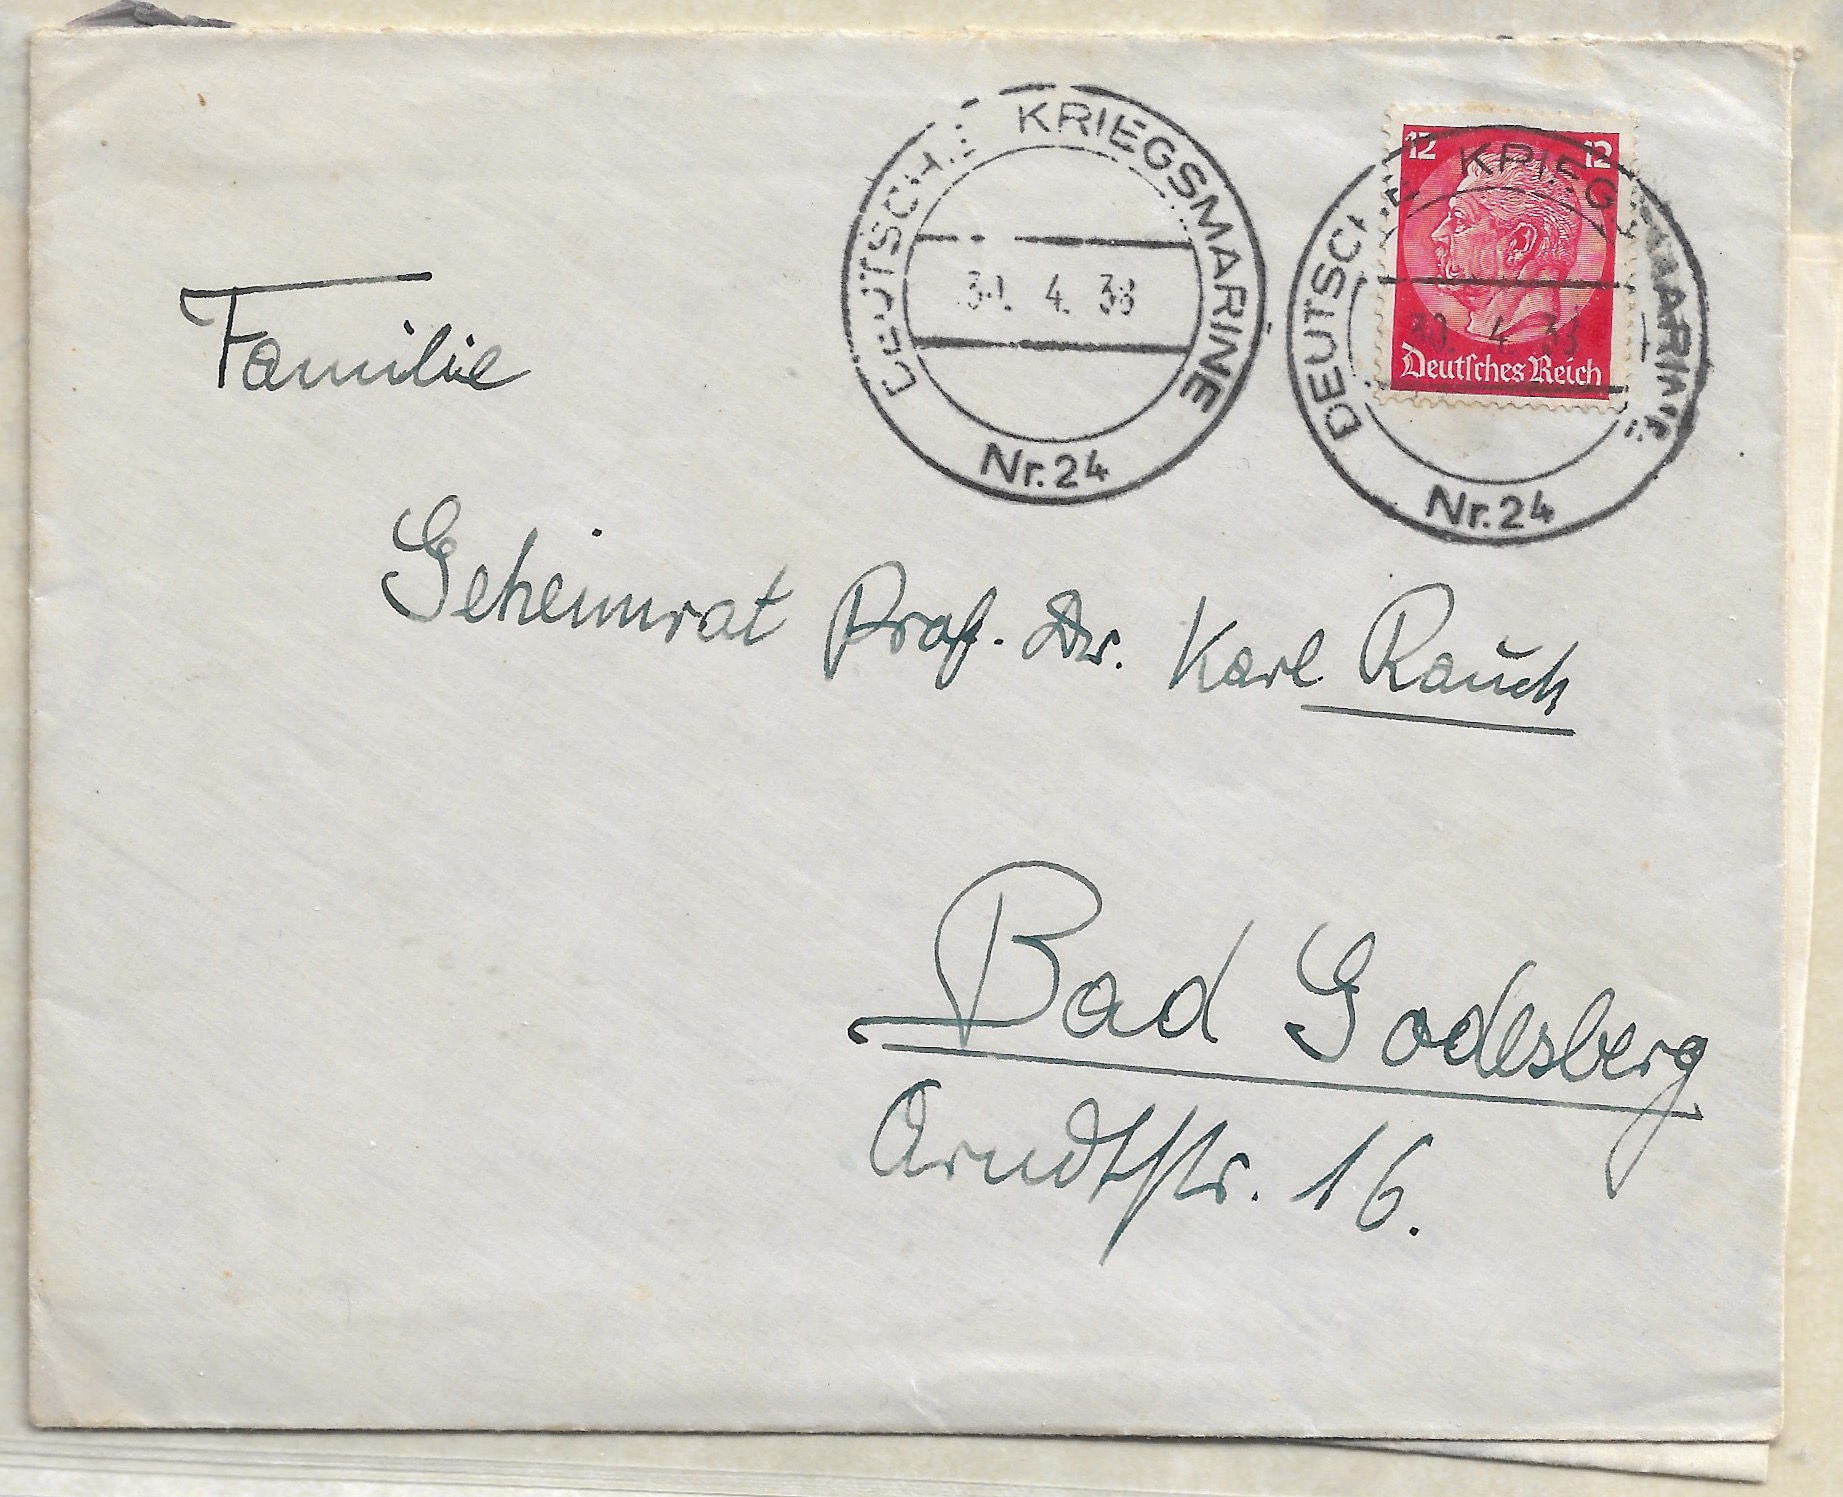 DEUTSCHE KRIEGSMARINE
30. 4. 38
Nr. 24
12 12
Deutsches Reich
DEUTSCHE KRIEGSMARINE
30. 4. 38
Nr. 24
Familie
Geheimrat Prof. Dr. Karl Rauch
Bad Godesberg
Arndtstr. 16.